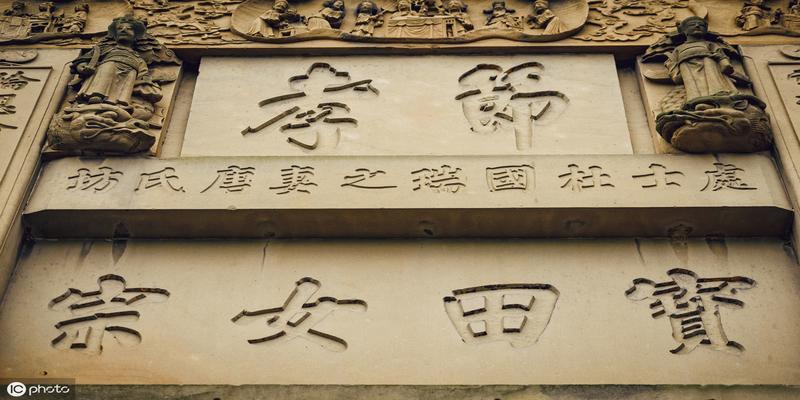 節孝
處士杜國瑞之妻唐氏坊
寶田女宗
IC photo